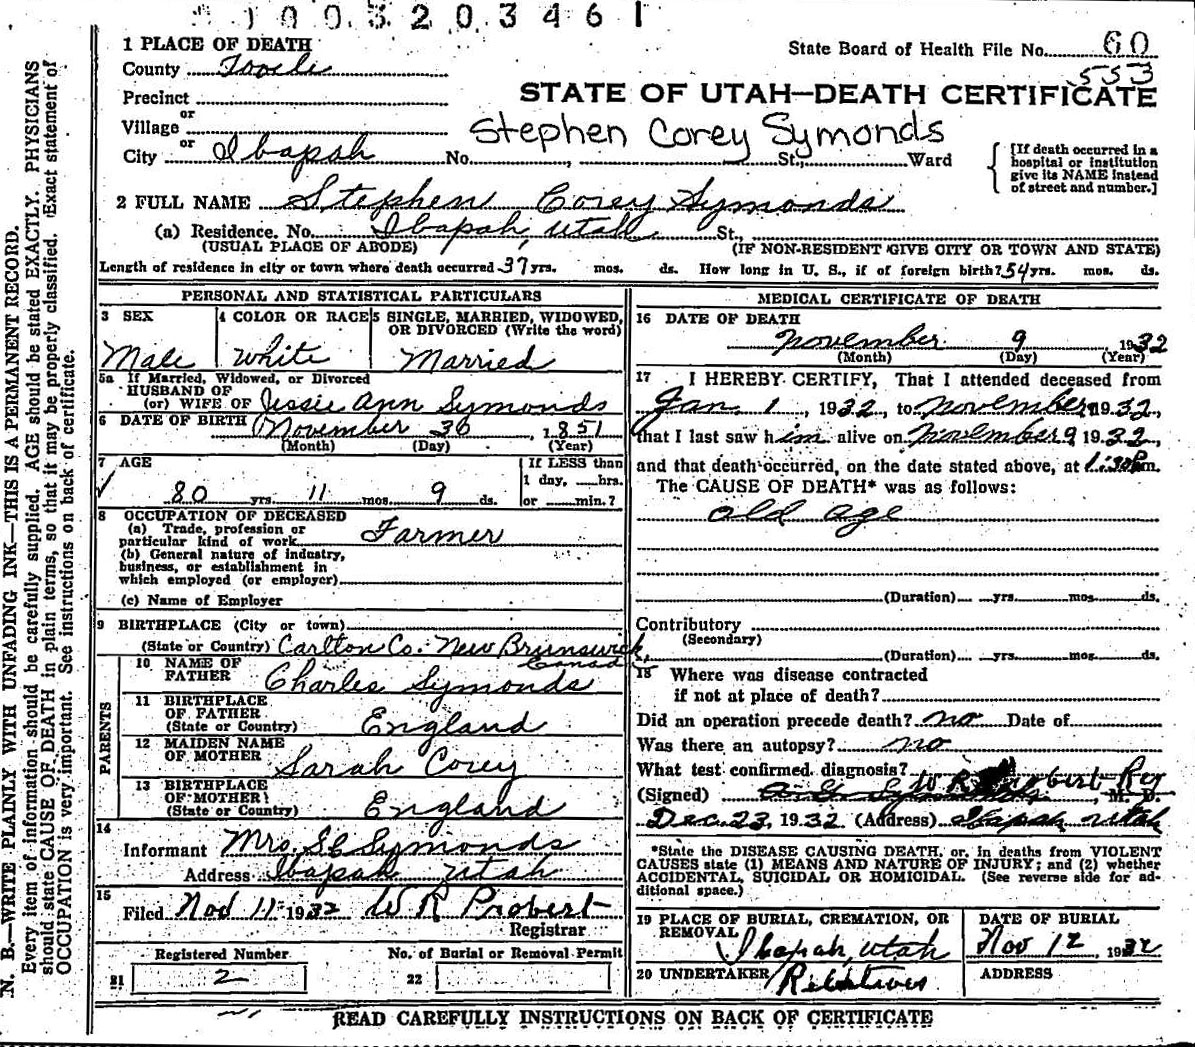 1003203461
1 PLACE OF DEATH
State Board of Health File No. 60
553
County Tooele
Precinct
or
Village
or
City Ibapah No. , St., Ward
STATE OF UTAH—DEATH CERTIFICATE
Stephen Corey Symonds
[If death occurred in a
hospital or institution
give its NAME instead
of street and number.]
2 FULL NAME Stephen Corey Symonds
(a) Residence. No. Ibapah, Utah St.,
(USUAL PLACE OF ABODE) (IF NON-RESIDENT GIVE CITY OR TOWN AND STATE)
Length of residence in city or town where death occurred 37 yrs. mos. ds. How long in U. S., if of foreign birth? 54 yrs. mos. ds.
PERSONAL AND STATISTICAL PARTICULARS
3 SEX
Male
4 COLOR OR RACE
White
5 SINGLE, MARRIED, WIDOWED,
OR DIVORCED (Write the word)
Married
5a If Married, Widowed, or Divorced
HUSBAND OF
(or) WIFE OF Jessie Ann Symonds
6 DATE OF BIRTH November 30, 1851
(Month) (Day) (Year)
7 AGE
80 yrs. 11 mos. 9 ds.
If LESS than
1 day, hrs.
or min.?
8 OCCUPATION OF DECEASED
(a) Trade, profession or
particular kind of work Farmer
(b) General nature of industry,
business, or establishment in
which employed (or employer)
(c) Name of Employer
9 BIRTHPLACE (City or town)
(State or Country) Carlton Co. New Brunswick,
Canada
PARENTS
10 NAME OF
FATHER Charles Symonds
11 BIRTHPLACE
OF FATHER
(State or Country) England
12 MAIDEN NAME
OF MOTHER Sarah Corey
13 BIRTHPLACE
OF MOTHER
(State or Country) England
14
Informant Mrs. S C Symonds
Address Ibapah Utah
15
Filed Nov 11, 1932 W R Probert
Registrar
Registered Number
21 2
No. of Burial or Removal Permit
22
MEDICAL CERTIFICATE OF DEATH
16 DATE OF DEATH
November 9 1932
(Month) (Day) (Year)
17 I HEREBY CERTIFY, That I attended deceased from
Jan 1, 1932, to November 9 1932,
that I last saw him alive on November 9 1932,
and that death occurred, on the date stated above, at 1:30 P m.
The CAUSE OF DEATH* was as follows:
old age
(Duration) yrs. mos. ds.
Contributory
(Secondary)
(Duration) yrs. mos. ds.
18 Where was disease contracted
if not at place of death?
Did an operation precede death? no Date of
Was there an autopsy? no
What test confirmed diagnosis?
W R Probert Reg
(Signed) Symonds, M. D.
Dec. 23, 1932 (Address) Ibapah Utah
*State the DISEASE CAUSING DEATH, or, in deaths from VIOLENT
CAUSES state (1) MEANS AND NATURE OF INJURY; and (2) whether
ACCIDENTAL, SUICIDAL OR HOMICIDAL. (See reverse side for ad-
ditional space.)
19 PLACE OF BURIAL, CREMATION, OR
REMOVAL
Ibapah, Utah
DATE OF BURIAL
Nov 12, 1932
20 UNDERTAKER
Relatives
ADDRESS
READ CAREFULLY INSTRUCTIONS ON BACK OF CERTIFICATE
N. B.—WRITE PLAINLY WITH UNFADING INK—THIS IS A PERMANENT RECORD.
Every item of information should be carefully supplied. AGE should be stated EXACTLY. PHYSICIANS
should state CAUSE OF DEATH in plain terms, so that it may be properly classified. Exact statement of
OCCUPATION is very important. See instructions on back of certificate.